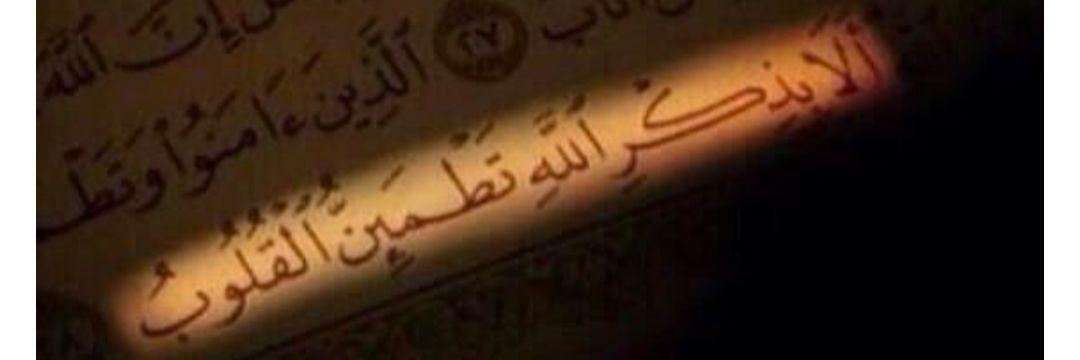 إِنَّ ٱللَّهَ
أَنَابَ ٢٧ ٱلَّذِينَ ءَامَنُوا۟ وَتَطْ
أَلَا بِذِكْرِ ٱللَّهِ تَطْمَئِنُّ ٱلْقُلُوبُ